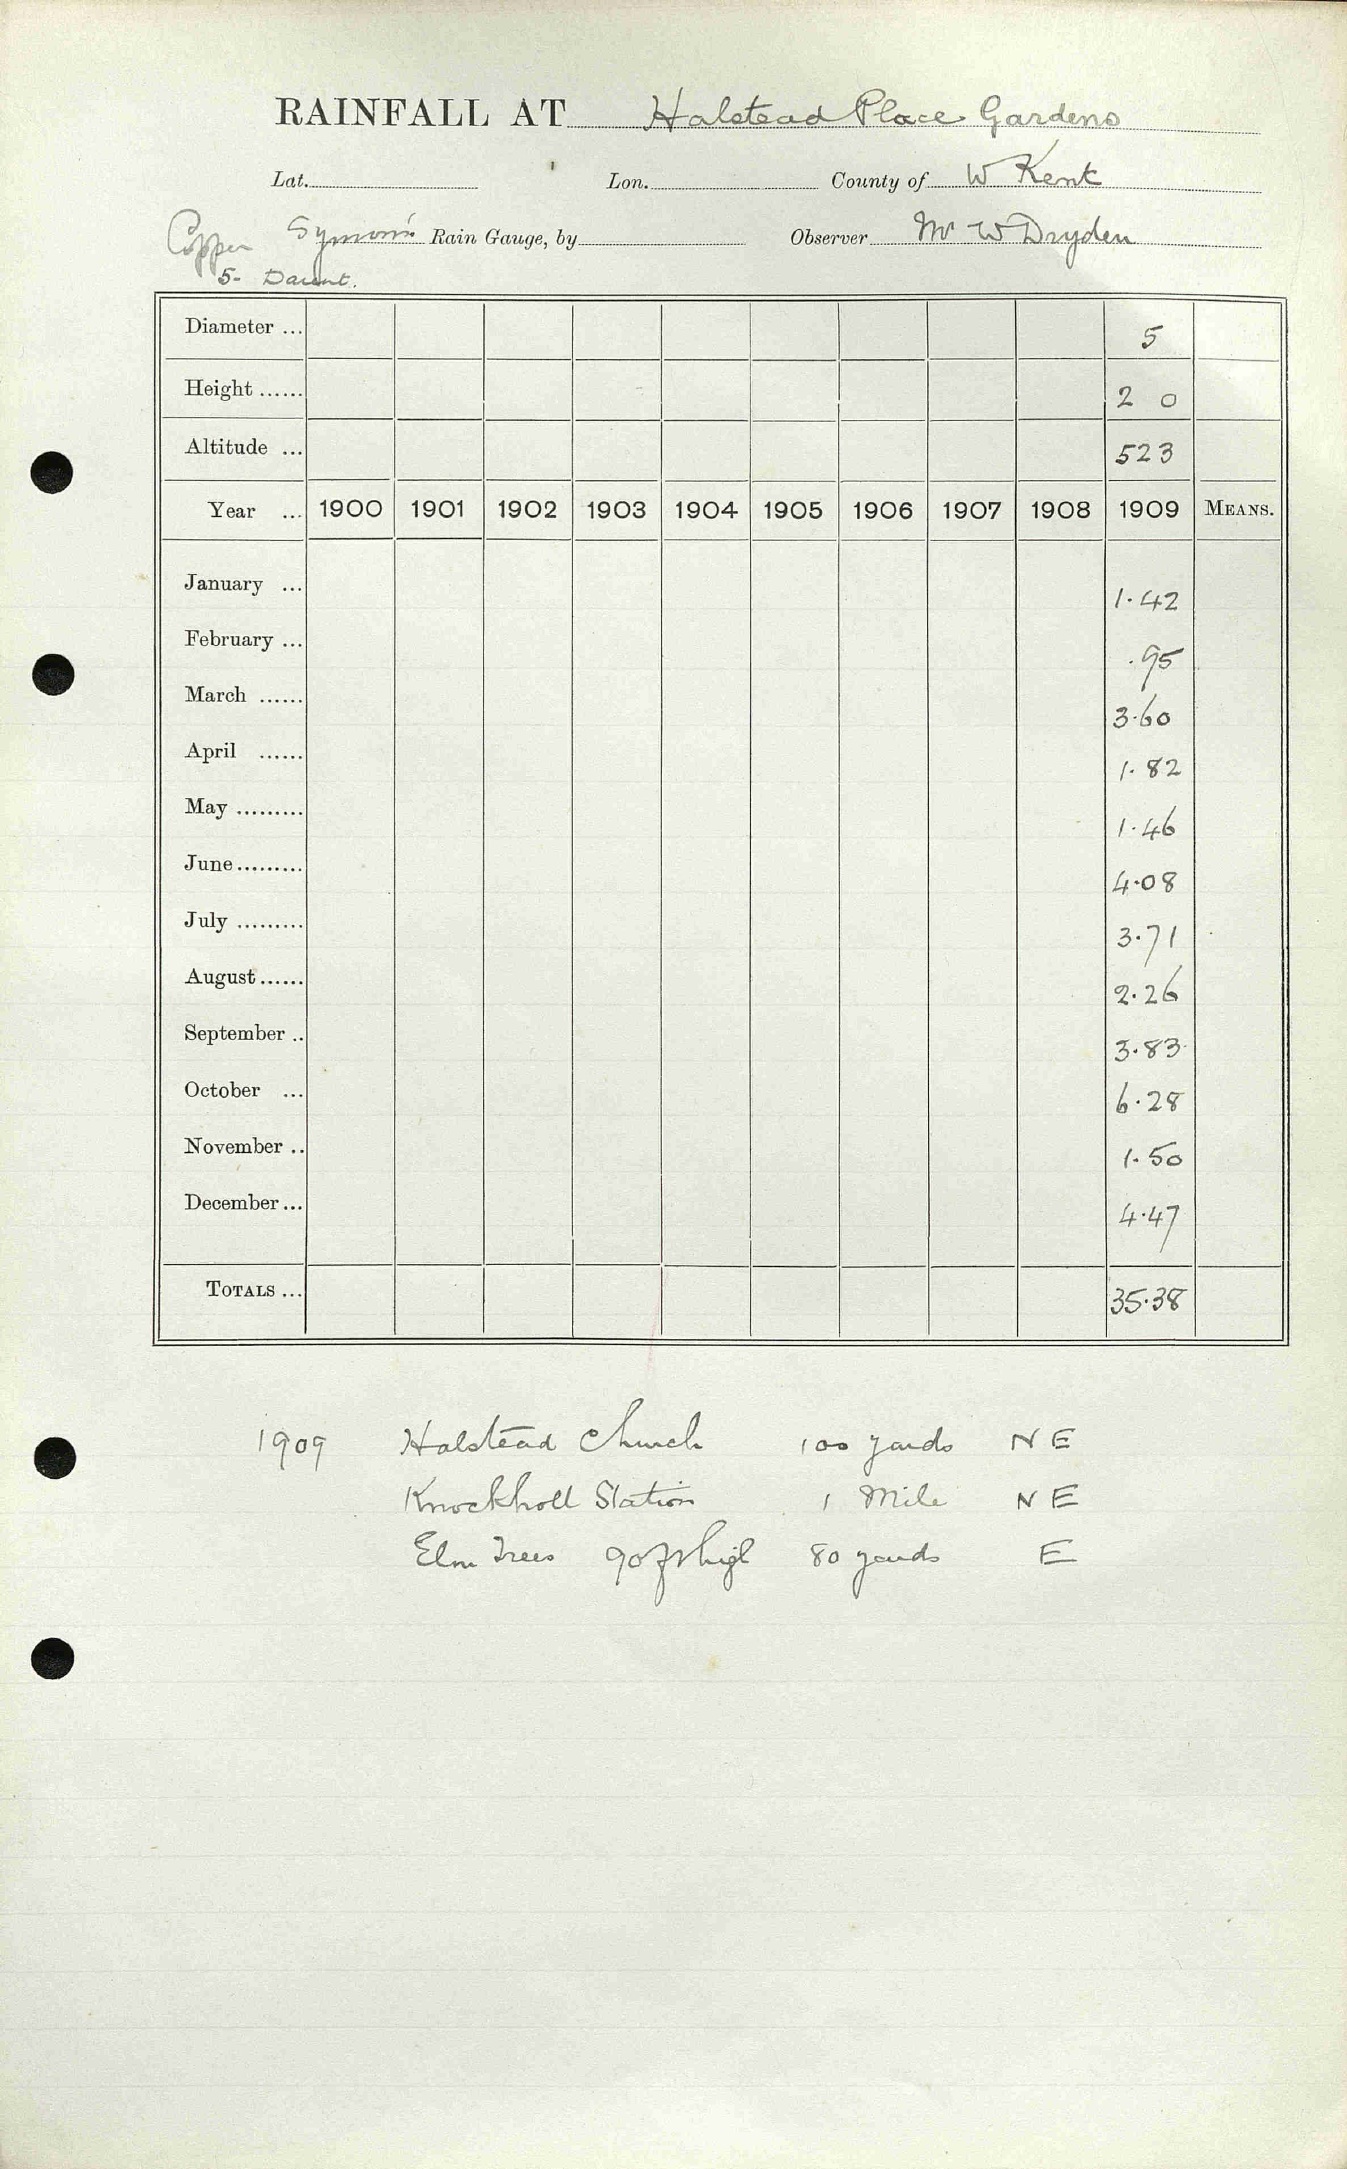 RAINFALL AT Halstead Place Gardens
Lat. Lon. County of W Kent
Copper Symons Rain Gauge, by Observer Mr W Dryden
5- Darent.
Diameter ... 5
Height ...... 2 0
Altitude ... 523
Year ... 1900 1901 1902 1903 1904 1905 1906 1907 1908 1909 MEANS.
January ... 1.42
February ... .95
March ...... 3.60
April ...... 1.82
May ......... 1.46
June ......... 4.08
July ......... 3.71
August ...... 2.26
September .. 3.83
October ... 6.28
November .. 1.50
December ... 4.47
TOTALS ... 35.38
1909 Halstead Church 100 yards N E
Knockholt Station 1 Mile N E
Elm Trees 90 ft high 80 yards E